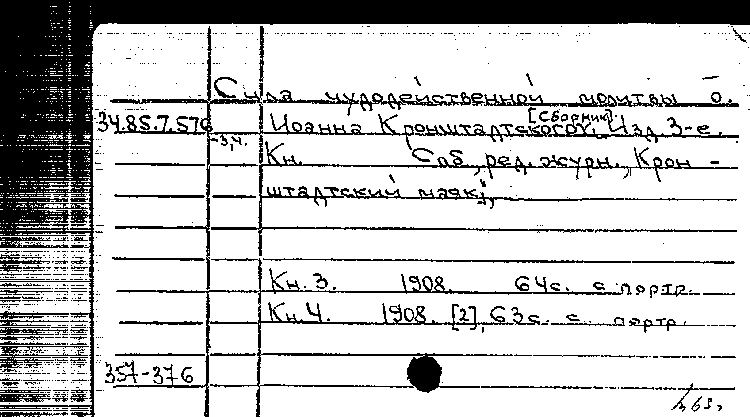 Сила чудодейственной молитвы о.
[Сборник].
34.85.7.576 Иоанна Кронштадтского. Изд. 3-е.
-3,4.
Кн. Спб, ред. журн. „Крон-
штадтский маяк",
Кн. 3. 1908. 64 с. с портр.
Кн. 4. 1908. [2], 63 с. с портр.
357-376